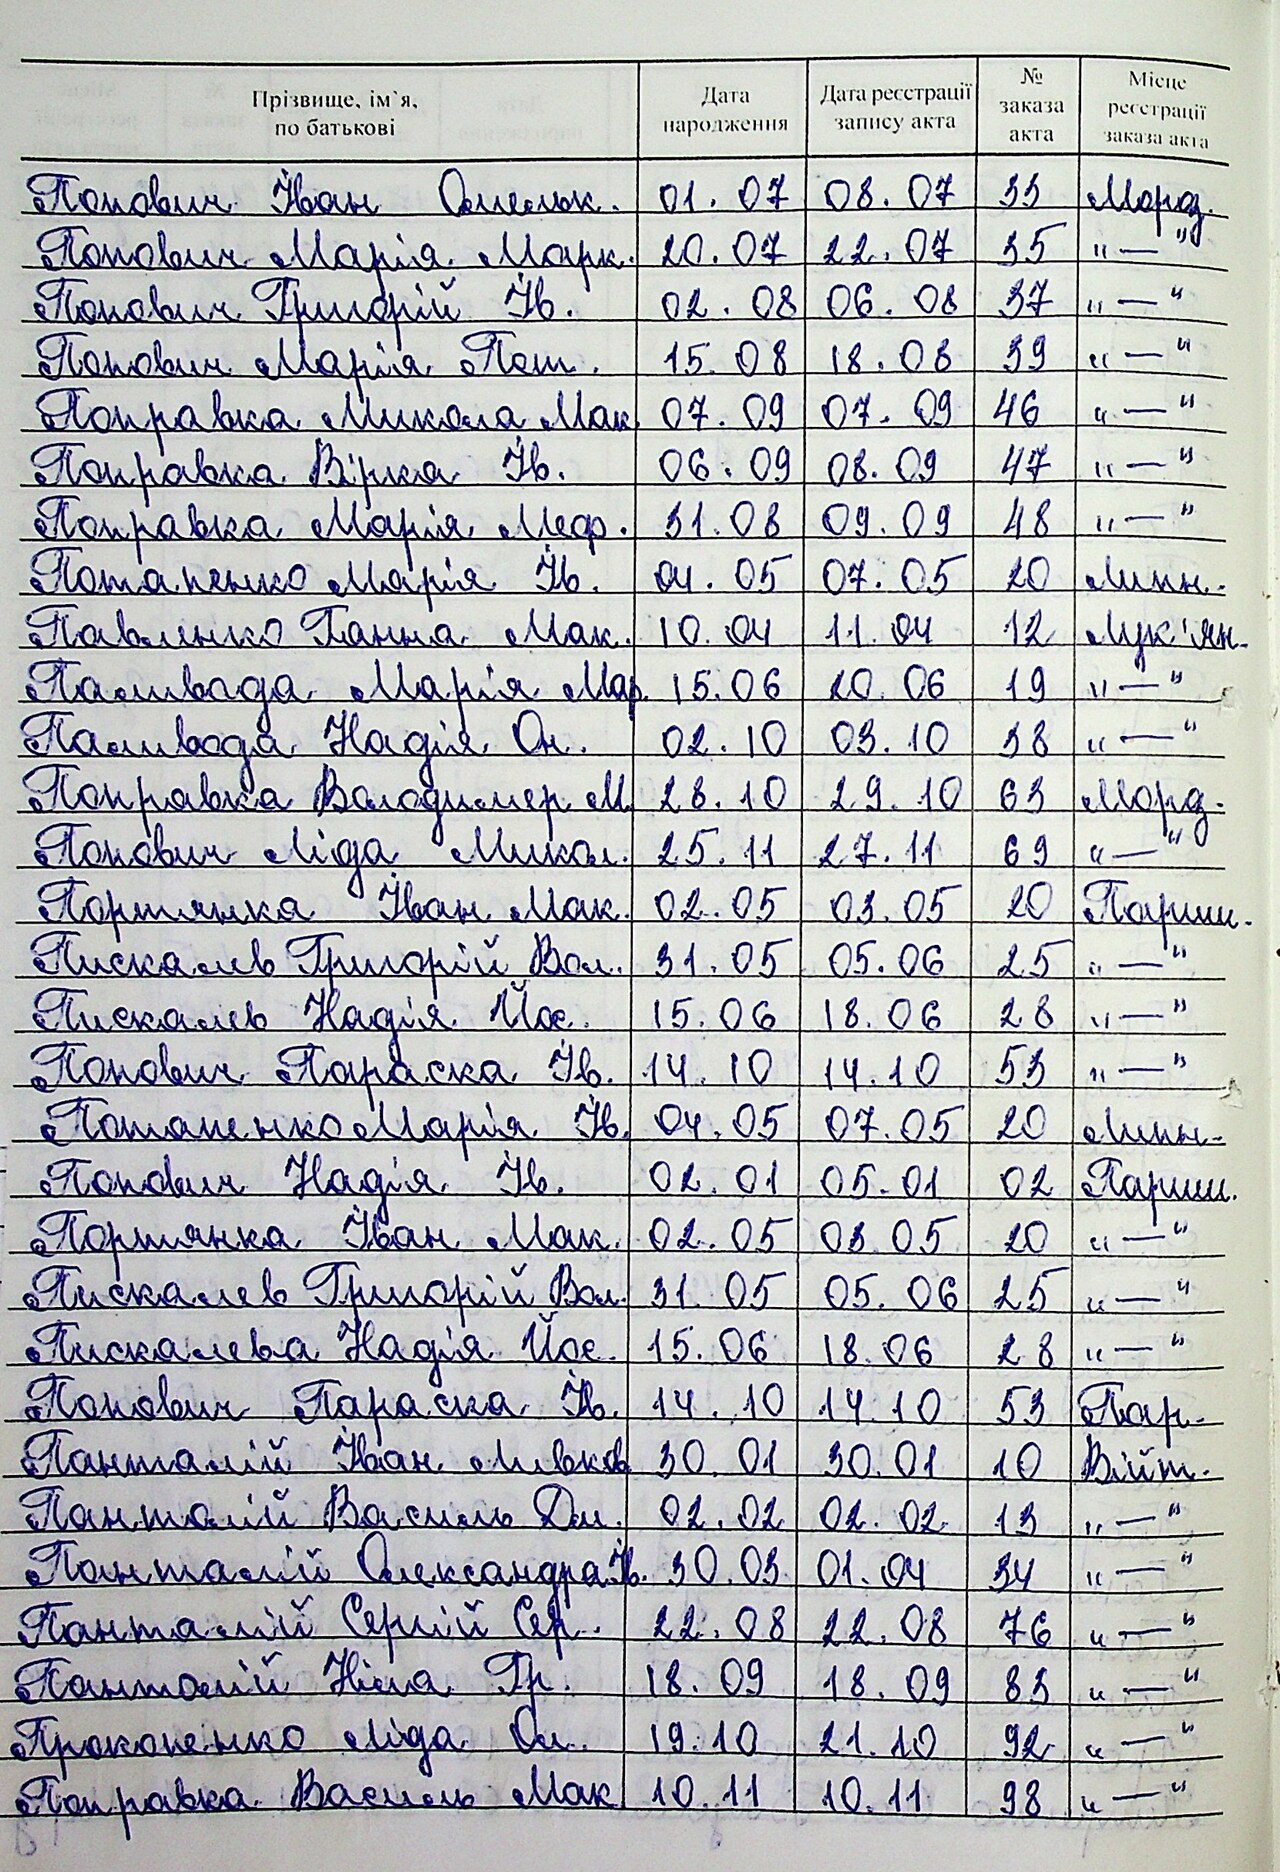 Прізвище, ім`я, по батькові Дата народження Дата реєстрації запису акта № заказа акта Місце реєстрації заказа акта
Попович Іван Омельк. 01.07 08.07 33 Мороз.
Попович Марія Марк. 20.07 22.07 35 "—"
Попович Григорій Ів. 02.08 06.08 37 "—"
Попович Марія Пет. 15.08 18.08 39 "—"
Поправка Микола Мак. 07.09 07.09 46 "—"
Поправка Вірка Ів. 06.09 08.09 47 "—"
Поправка Марія Меф. 31.08 09.09 48 "—"
Потапенко Марія Ів. 04.05 07.05 20 Липн.
Павленко Ганна Мак. 10.04 11.04 12 Лук'ян.
Паливода Марія Мар. 15.06 20.06 19 "—"
Паливода Надія Он. 02.10 03.10 38 "—"
Поправка Володимер М. 28.10 29.10 63 Мороз.
Попович Ліда Микол. 25.11 27.11 69 "—"
Портянка Іван Мак. 02.05 03.05 20 Париш.
Пискалев Григорій Вол. 31.05 05.06 25 "—"
Пискалев Надія Йос. 15.06 18.06 28 "—"
Попович Параска Ів. 14.10 14.10 53 "—"
Потапенко Марія Ів. 04.05 07.05 20 Липн.
Попович Надія Ів. 02.01 05.01 02 Париш.
Портянка Іван Мак. 02.05 03.05 20 "—"
Пискалев Григорій Вол. 31.05 05.06 25 "—"
Пискалева Надія Йос. 15.06 18.06 28 "—"
Попович Параска Ів. 14.10 14.10 53 Пар.
Панталій Іван Левков 30.01 30.01 10 Війт.
Панталій Василь Дм. 02.02 02.02 13 "—"
Панталій Олександра Ів. 30.03 01.04 34 "—"
Панталій Сергій Сер. 22.08 22.08 76 "—"
Панталій Ніна Гр. 18.09 18.09 83 "—"
Прокопенко Ліда Ол. 19.10 21.10 92 "—"
Поправка Василь Мак 10.11 10.11 98 "—"